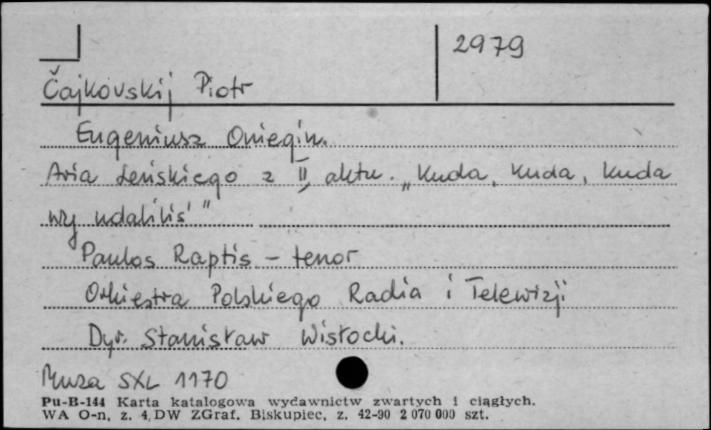 2979
Čajkovskij Piotr
Eugeniusz Oniegin.
Aria Leńskiego z II aktu. „Kuda, kuda, kuda
wy udaliliś"
Paulos Raptis - tenor
Orkiestra Polskiego Radia i Telewizji
Dyr. Stanisław Wisłocki.
Muza SXL 1170
Pu-B-144 Karta katalogowa wydawnictw zwartych i ciągłych.
WA O-n, z. 4, DW ZGraf. Biskupiec, z. 42-90 2 070 000 szt.